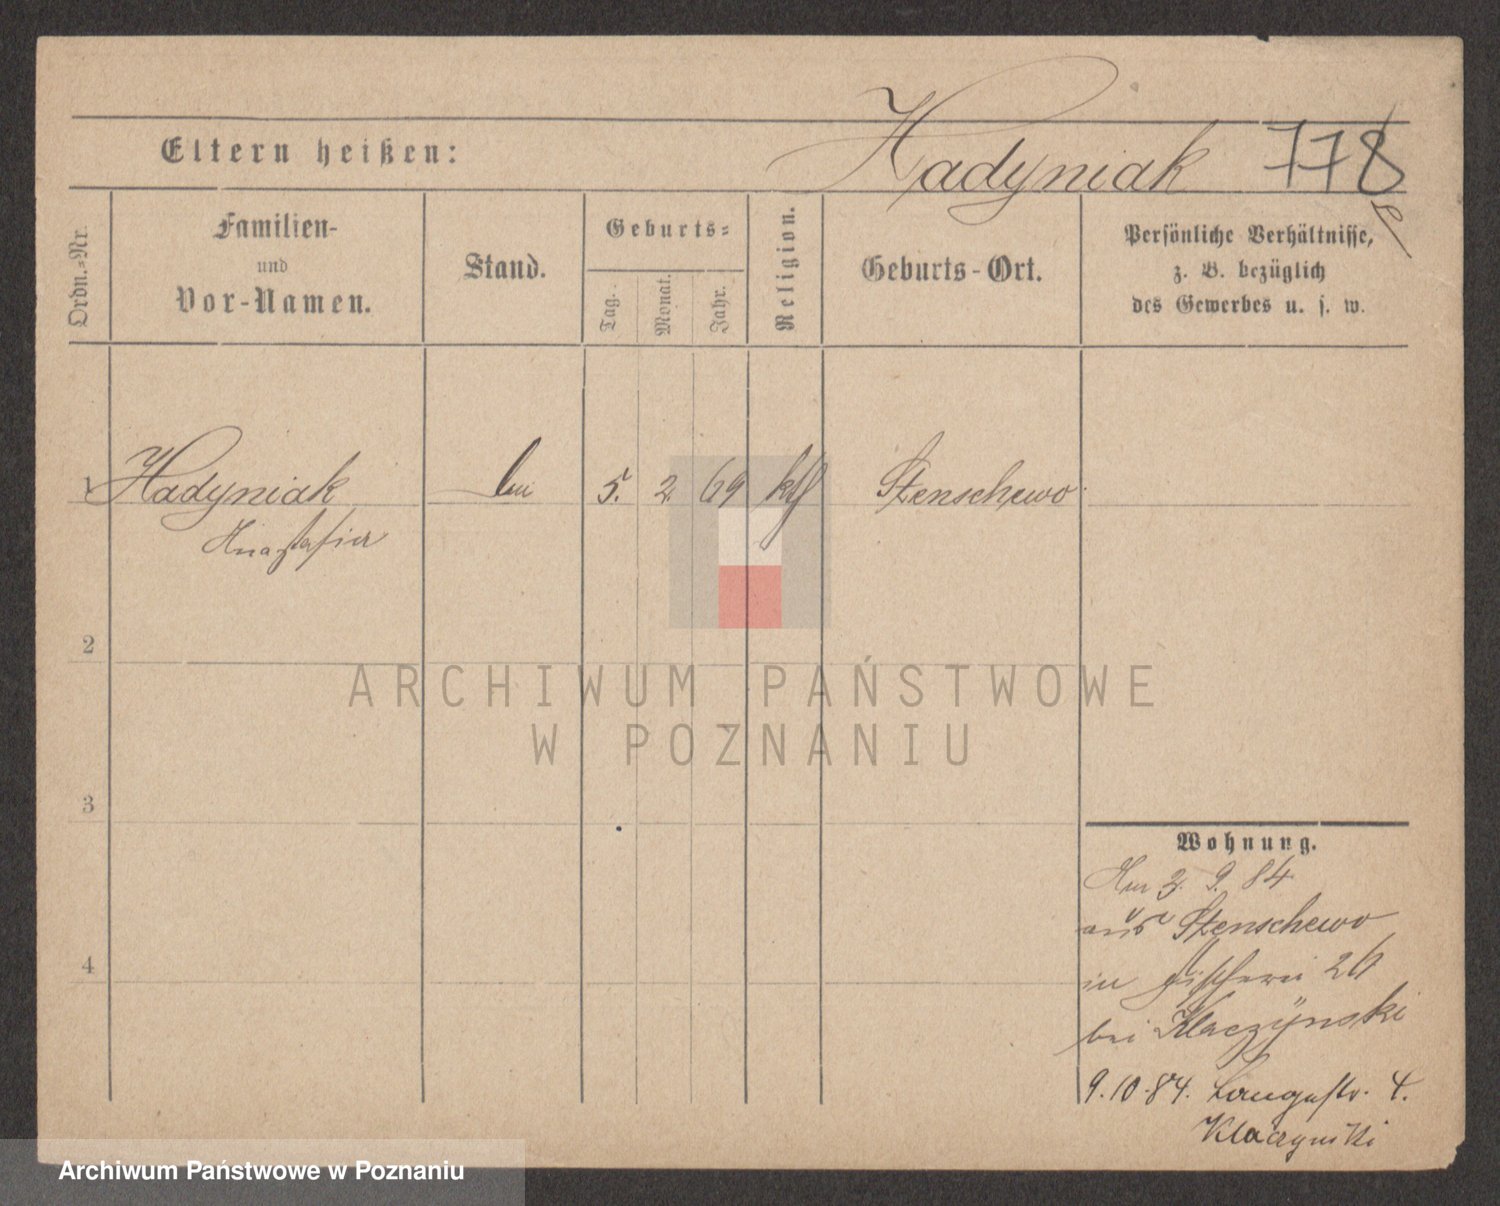 Hadyniak 778
Eltern heißen:
Ordn.-Nr.
Familien-
und
Vor-Namen.
Stand.
Geburts-
Tag.
Monat.
Jahr.
Religion.
Geburts-Ort.
Persönliche Verhältnisse,
z. B. bezüglich
des Gewerbes u. s. w.
1 Hadyniak 5. 2. 69 kth Stenschewo
Anastasia
2
3
4
Wohnung.
2. 9. 84
aus Stenschewo
in Fischerei 26
bei Klaczÿnski
9.10.84. Langestr. 4.
Klaczynski
ARCHIWUM PAŃSTWOWE
W POZNANIU
Archiwum Państwowe w Poznaniu